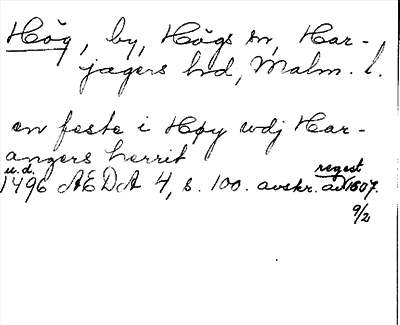 Hög, by, Högs sn, Har-
jagers hd, Malm. l.
en feste i Høy wdj Har-
angers herrit
u.d. regest
1496 AEDA 4, s. 100. avskr. av 1607.
9/2